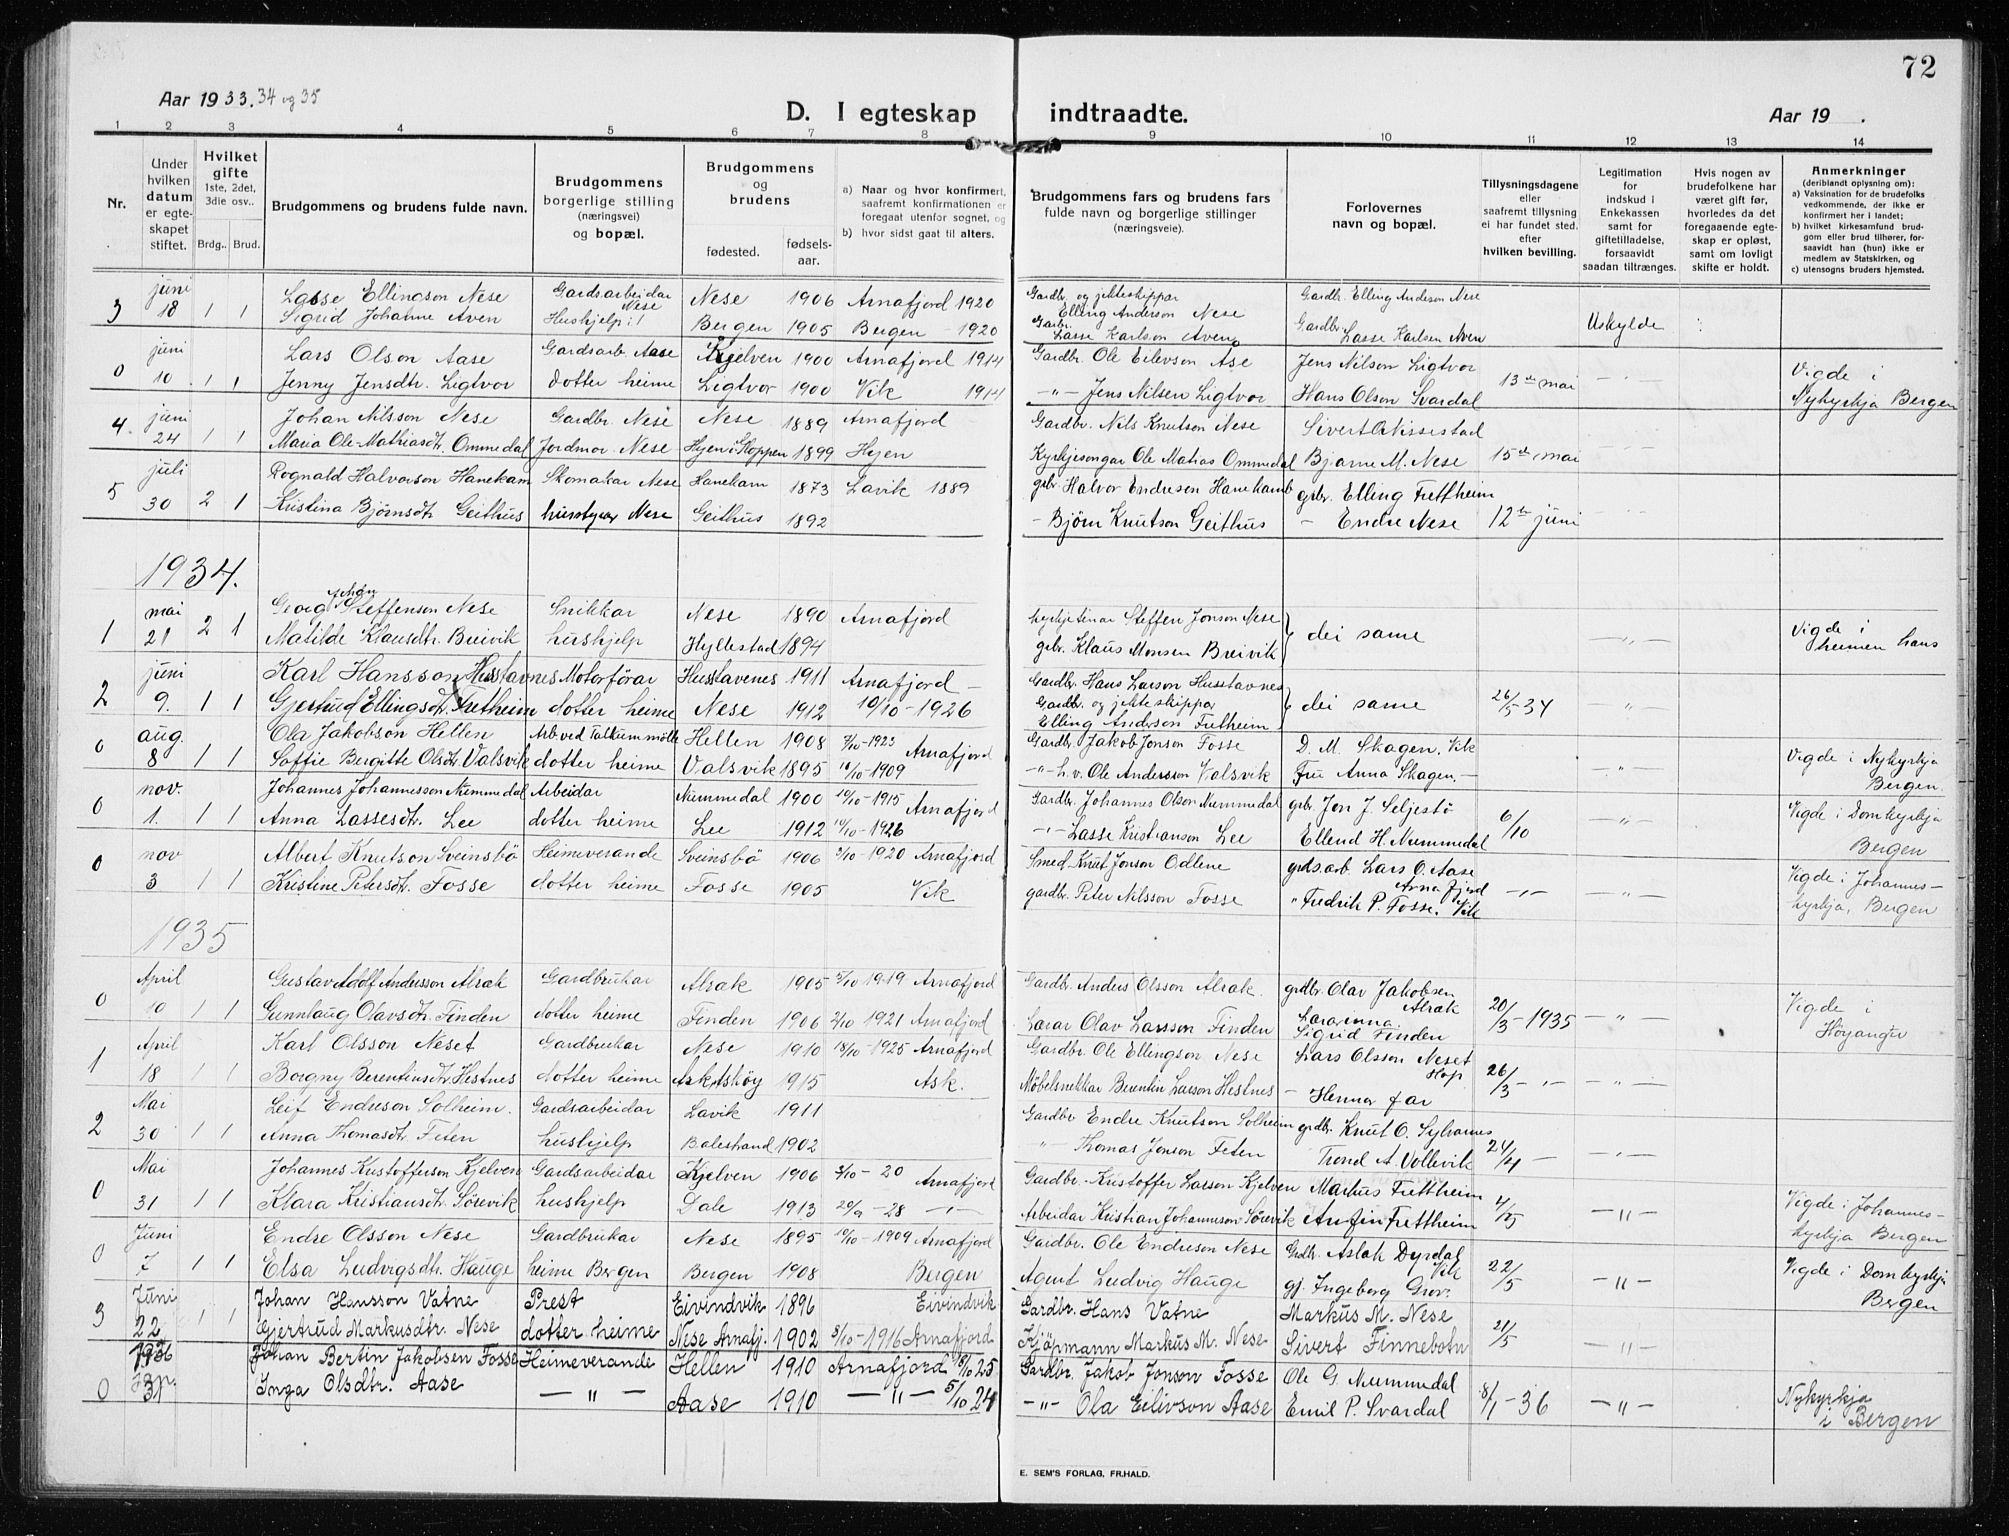 72
Aar 1933. 34 og 35
D. I egteskap indtraadte.
Aar 19 .
1 2 3 4 5 6 7 8 9 10 11 12 13 14
Nr.
Under hvilken datum er egteskapet stiftet.
Hvilket gifte 1ste, 2det, 3die osv..
Brdg.. Brud.
Brudgommens og brudens fulde navn.
Brudgommens borgerlige stilling (næringsvei) og bopæl.
Brudgommens og brudens
fødested. fødsels-aar.
a) Naar og hvor konfirmert, saafremt konfirmationen er foregaat utenfor sognet, og
b) hvor sidst gaat til alters.
Brudgommens fars og brudens fars fulde navn og borgerlige stillinger (næringsveie).
Forlovernes navn og bopæl.
Tillysningsdagene eller saafremt tillysning ei har fundet sted. efter hvilken bevilling.
Legitimation for indskud i Enkekassen samt for giftetilladelse, forsaavidt saadan tiltrænges.
Hvis nogen av brudefolkene har været gift før, hvorledes da det foregaaende egteskap er opløst, samt om lovligt skifte er holdt.
Anmerkninger (deriblandt oplysning om):
a) Vaksination for de brudefolks vedkommende, der ikke er konfirmert her i landet;
b) hvilket kirkesamfund brudgom eller brud tilhører, forsaavidt han (hun) ikke er medlem av Statskirken, og
c) utensogns bruders hjemsted.
3 juni 18 1 1 Lasse Ellingson Nese Gardsarbeidar Nese Nese 1906 Arnafjord 1920 Gardbr. og jekteskippar Elling Anderson Nese Gardbr. Elling Anderson Nese Uskylde
Sigrid Johanne Aven Hushjelp Bergen 1905 Bergen - 1920 Gardbr. Lasse Karlson Aven Gardbr. Lasse Karlsen Aven
0 juni 10. 1 1 Lars Olson Aase Gardsarb. Aase Kjelven 1900 Arnafjord 1914 Gardbr. Ole Eilevson Ase Jens Nilson Ligtvor 13de mai Vigde i Nykyrkja Bergen
Jenny Jensdtr. Ligtvor dotter heime Ligtvor 1900 Vik 1914 -"- Jens Nilsen Ligtvor Hans Olson Svardal
4. juni 24 1 1 Johan Nilsson Nese Gardbr. Nese Nese 1889 Arnafjord Gardbr. Nils Knutson Nese Sivert Nissestad 15de mai
Maria Ole-Mathiasdtr. Ommedal Jordmor. Nese Hejen i Gloppen 1899 Hejen Kyrkjesongar Ole Matias Ommedal Bjarne M. Nese
5 juli 30 2 1 Rognald Halvorson Hanekam Skomakar Nese Hanekam 1873 Lavik 1889 gbr. Halvor Endreson Hanekamb gbr. Elling Frettheim 12te juni
Kristina Bjørnsdtr. Geithus husstyrar Nese Geithus 1892 - Bjørn Knutson Geithus - Endre Nese
1934.
1 mai 21 2 1 Georg Johan Steffenson Nese Snikkar Nese 1890 Arnafjord kyrkjetenar Steffen Jonson Nese dei same -"- Vigde i heimen hans
Matilde Klausdtr. Breivik hushjelp Hyllestad 1894 gbr. Klaus Monsen Breivik
2 juni 9. 1 1 Karl Hansson Husstavnes Motorförar Husstavenes 1911 Arnafjord - Gardbr. Hans Larson Husstavnes dei same 26/5-34 -"-
Gjertrud Ellingsdtr. Fretheim dotter heime Nese 1912 10/10-1926 Gardbr. og jekteskippar Elling Anderson Fretheim
0 aug. 8 1 1 Ola Jakobson Hellen Arb. ved Talkummölle Hellen 1908 7/10-1923 Arnafjord Gardbr. Jakob Jonson Fosse D. M. Skagen. Vik -"- Vigde i Nykyrkja Bergen.
Soffie Bergitte Olsdtr Valsvik dotter heime Valsvik 1895 10/10-1909 -"- h.v. Ole Andersson Valsvik Fru Anna Skagen, -
0 nov. 1. 1 1 Johannes Johannesson Nummedal Arbeidar Nummedal 1900 10/10-1915 Arnafjord Gardbr. Johannes Olson Nummedal gbr. Jon J. Seljestö 6/10 -"- Vigde i Domkyrkja Bergen
Anna Lassesdtr. Lee dotter heime Lee 1912 10/10-1926 -"- Lasse Kristianson Lee Ellend H. Nummedal
0 nov 3 1 1 Albert Knutson Sveinsbö Heimeverande Sveinsbö 1906 3/10-1920 Arnafjord Smed Knut Jonson Odlene grds.arb. Lars O. Aase Arnafjord -"- -"- Vigde i Johannes-kyrkja, Bergen
Kristine Petersdtr. Fosse dotter heime Fosse 1905 Vik gardbr. Peter Nilsson Fosse " Fredrik P. Fosse. Vik
1935
0 April 10 1 1 Gustav Adolf Andersson Alrak Gardbrukar Alrak 1905 5/10 1919 Arnafjord Gardbr. Anders Olsson Alrak. grdbr. Olav Jakobsen Alrak 20/3-1935 -"- Vigde i Höyanger
Gunnlaug Olavsdtr. Finden dotter heime Finden 1906 2/10 1921 Arnafjord Lærar Olav Larsson Finden Lærarinna Sigrid Finden
1 April 18 1 1 Karl Olsson Neset Gardbrukar Nese 1910 18/10-1925 Arnafjord Gardbr. Ole Ellingson Nese Lars Olsson Neset Hop 26/3 -"- -"-
Borgny Berentinsdtr. Hestnes dotter heime Ask Askøy 1915 Ask. Möbelsnekkar Berentin Larson Hestnes - Hennar far
2 Mai 30 1 1 Leif Endreson Solheim. Gardsarbeidar Lavik 1911 Gardbr Endre Knutson Solheim grdbr. Knut O. Sylvarnes 24/4 - -"-
Anna Thomasdtr. Feten hushjelp Balestrand 1902 " Thomas Jonson Feten Trond A. Vollevik
0 Mai 31 1 1 Johannes Kristofferson Kjelven Gardsarbeidar Kjelven 1906 3/10-20 Arnafjord Gardbr. Kristoffer Larson Kjelven Markus Frettheim 4/5 -"- Vigde i Johannes-kyrkja Bergen
Klara Kristiansdtr. Sörevik hushjelp Dale 1913 29/9-28 -"- Arbeidar Kristian Johanneson Sörevik Anfin Frettheim
0 Juni 7 1 1 Endre Olsson Nese Gardbrukar Nese 1895 10/10-1909 Arnafjord Gardbr. Ole Endreson Nese Grdbr. Aslak Dyrdal Vik 22/5 -"- Vigde i Domkyrkja Bergen
Elsa Ludvigsdtr. Hauge heime Bergen Bergen 1908 Bergen Agent Ludvig Hauge gj. Ingeborg Grov.
3 Juni 22 1 1 Johan Hansson Vatne Prest Eivindvik 1896 Eivindvik Gardbr. Hans Vatne Markus M. Nese 21/5 -"-
Gjertrud Markusdtr. Nese dotter heime Nese Arnafj. 1902 8/10-1916 Arnafjord Kjöpmann Markus M. Nese Sivert Finnebotn
1936
0 Jan. 31 Johan Bertin Jakobsen Fosse Heimeverande Hellen 1910 Arnafjord 18/10 25 Gardbr. Jakob Jonson Fosse Ole G. Nummedal 8/1-36 -"- Nykyrkja i Bergen
Inga Olsdtr. Aase -"- Aase 1910 -"- 5/10 24 -"- Ola Eilivson Aase Emil P. Svardal
E. SEM'S FORLAG, FR.HALD.